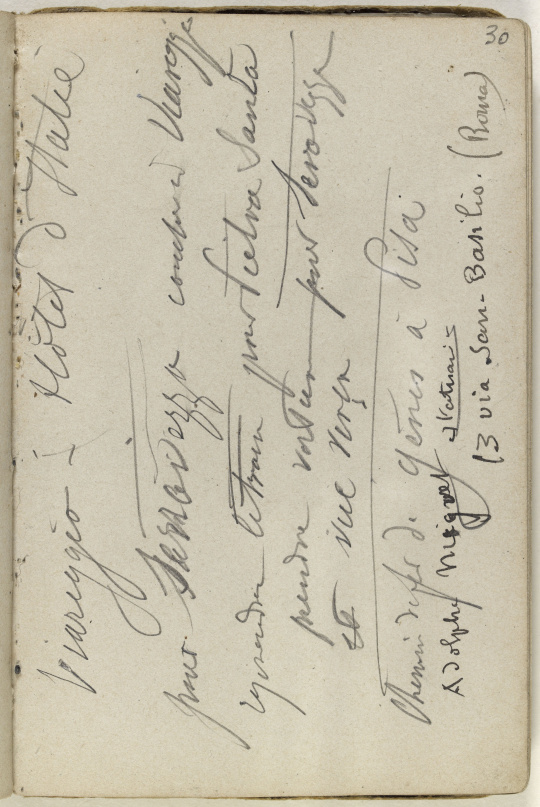 30
Viareggio - Hôtel d'Italie
pour Serravezza Viareggi
reprendre le train pour Pietra Santa
prendre voiture pour Seravezza
et vice versa
Chemin de fer de Gênes à Pisa
Adolphe
13 via San-Basilio. (Roma)